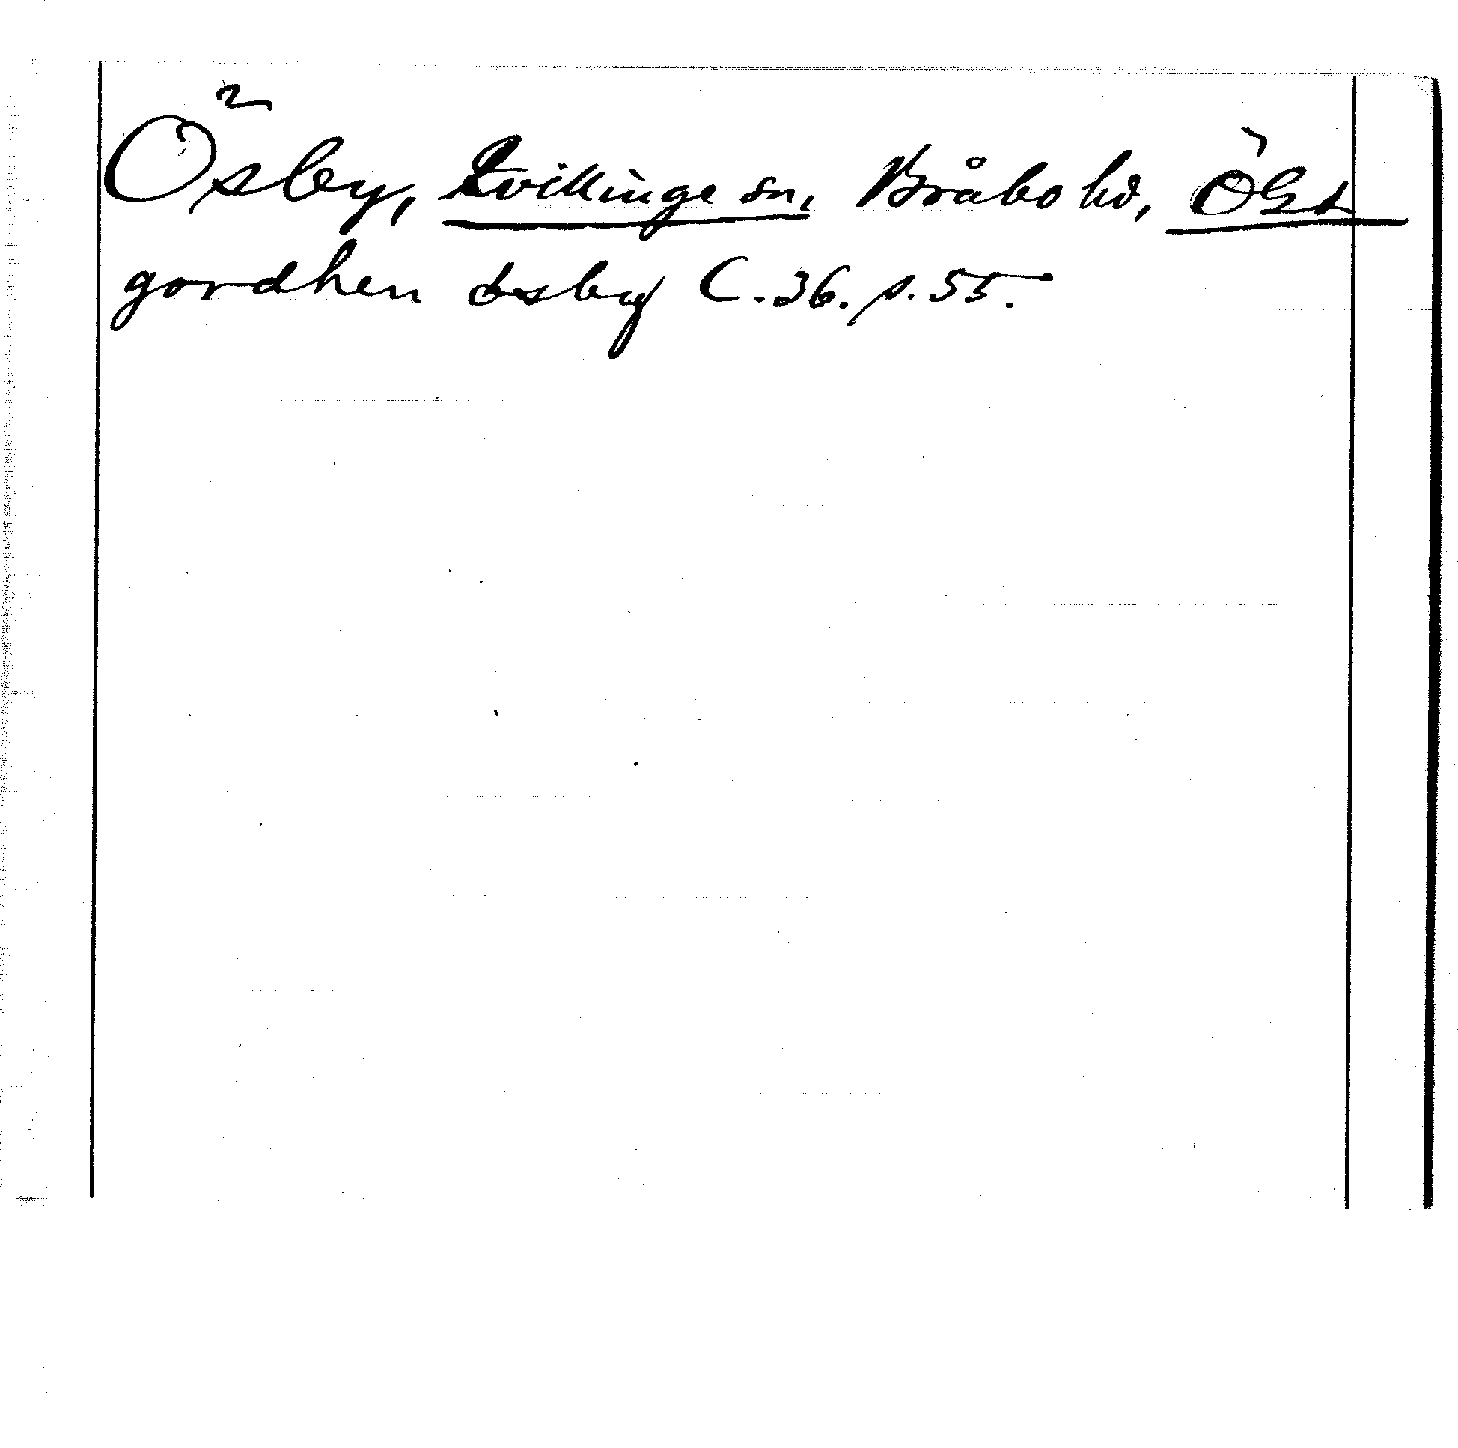 Ösby, Kvillinge sn, Bråbo hd, Ögt
gordhen øsby C.36. s.55.